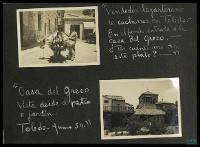 Vendedor lagarterano
de cacharros en Toledo.
En el fondo entrada a la
casa del Greco.
¿Por cuánto me da
este plato?
"Casa del Greco
Vista desde el patio
o jardín.
Toledo.